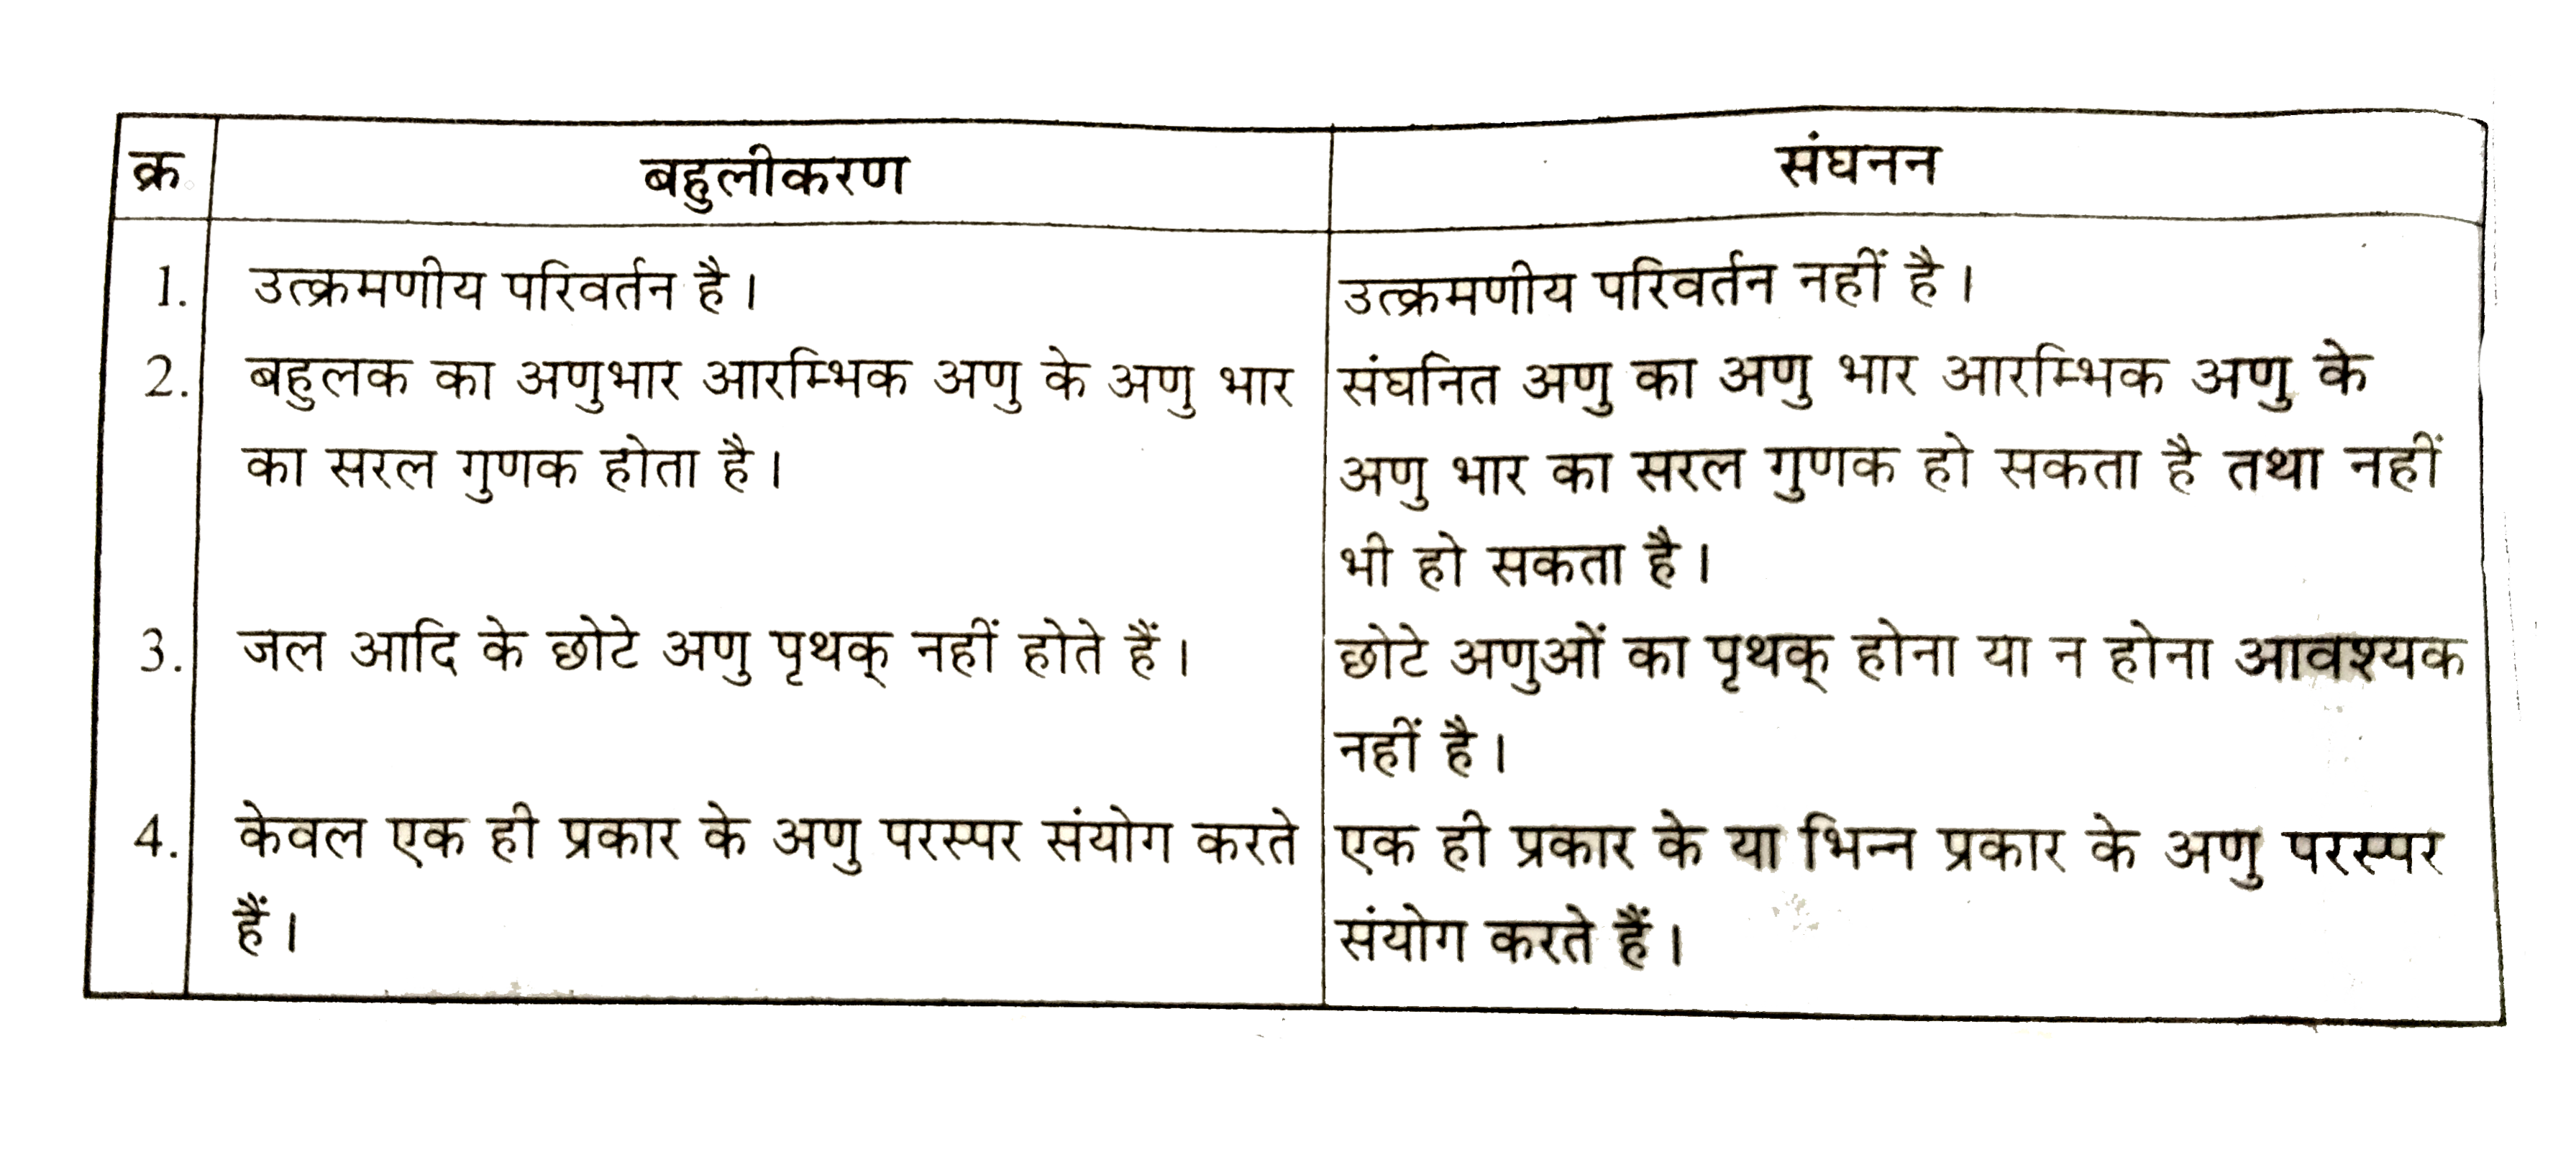 क्र. बहुलीकरण संघनन
1. उत्क्रमणीय परिवर्तन है। उत्क्रमणीय परिवर्तन नहीं है।
2. बहुलक का अणुभार आरम्भिक अणु के अणु भार संघनित अणु का अणु भार आरम्भिक अणु के
का सरल गुणक होता है। अणु भार का सरल गुणक हो सकता है तथा नहीं
भी हो सकता है।
3. जल आदि के छोटे अणु पृथक् नहीं होते हैं। छोटे अणुओं का पृथक् होना या न होना आवश्यक
नहीं है।
4. केवल एक ही प्रकार के अणु परस्पर संयोग करते एक ही प्रकार के या भिन्न प्रकार के अणु परस्पर
हैं। संयोग करते हैं।